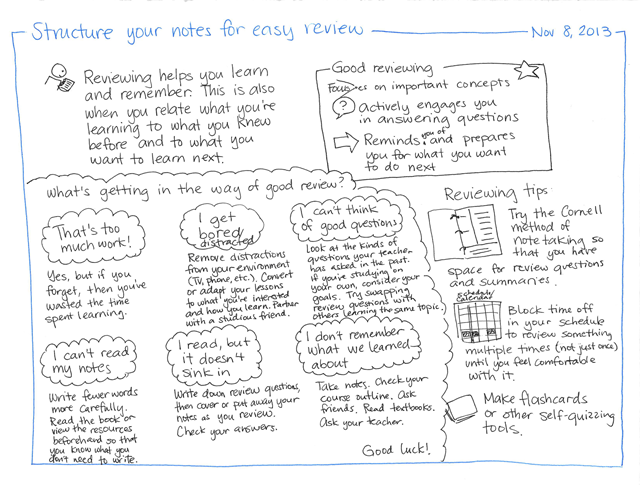 Structure your notes for easy review
Nov 8, 2013
Reviewing helps you learn
and remember. This is also
when you relate what you're
learning to what you knew
before and to what you
want to learn next.
Good reviewing
Focuses on important concepts
? actively engages you
in answering questions
Reminds you of and prepares
you for what you want
to do next
what's getting in the way of good review?
That's too
much work!
Yes, but if you
forget, then you've
wasted the time
spent learning.
I get
bored/
distracted
Remove distractions
from your environment
(TV, phone, etc.). Convert
or adapt your lessons
to what you're interested
and how you learn. Partner
with a studious friend.
I can't think
of good questions
Look at the kinds of
questions your teacher
has asked in the past.
If you're studying on
your own, consider your
goals. Try swapping
review questions with
others learning the same topic.
I can't read
my notes
Write fewer words
more carefully.
Read the book or
view the resources
beforehand so that
you know what you
don't need to write.
I read, but
it doesn't
sink in
Write down review questions,
then cover or put away your
notes as you review.
Check your answers.
I don't remember
what we learned
about
Take notes. Check your
course outline. Ask
friends. Read textbooks.
Ask your teacher.
Good luck!
Reviewing tips:
Try the Cornell
method of
notetaking so
that you have
space for review questions
and summaries.
schedule/
calendar
Block time off
in your schedule
to review something
multiple times (not just once)
until you feel comfortable
with it.
Make flashcards
or other self-quizzing
tools.